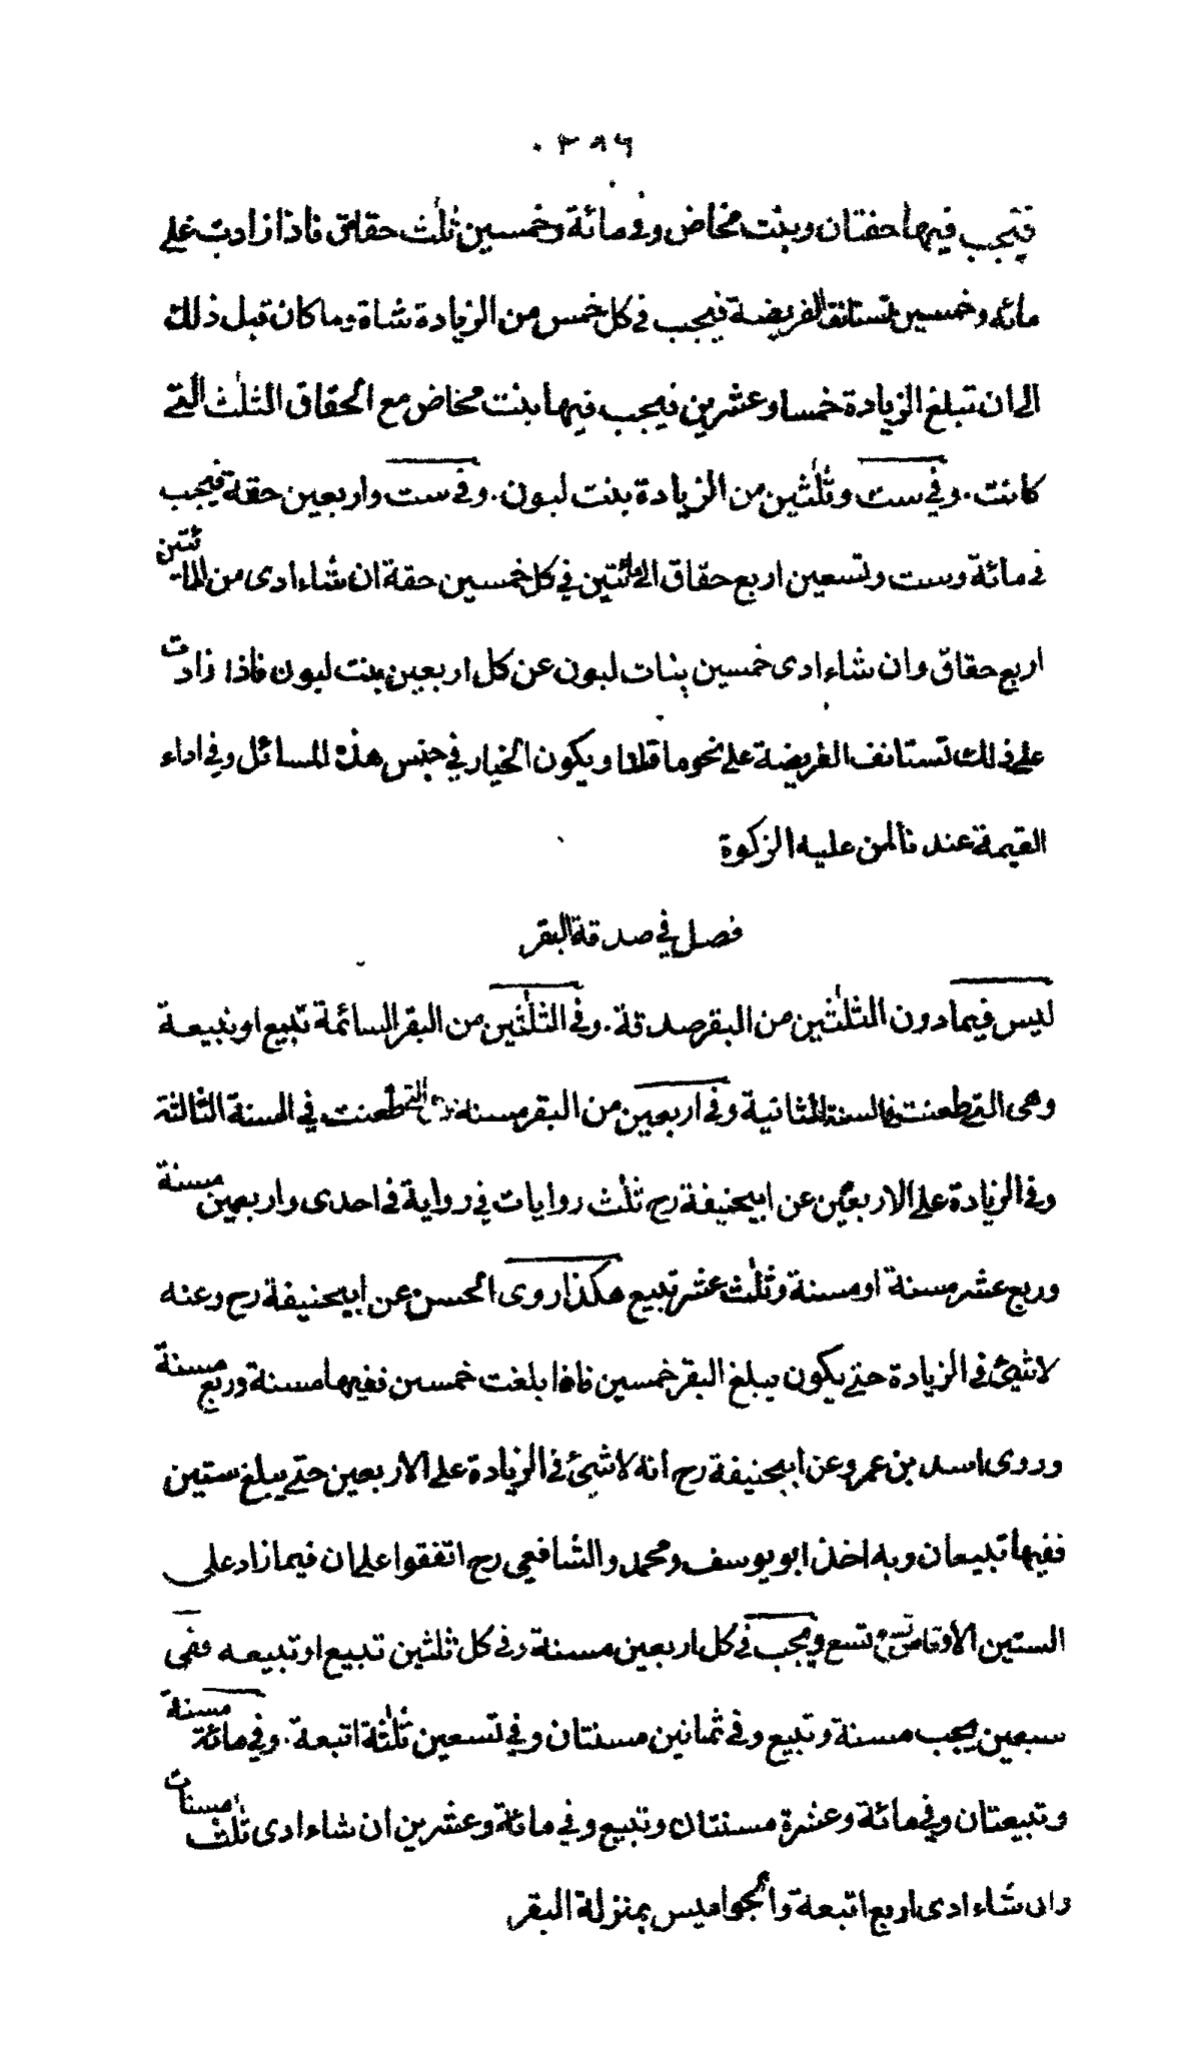 ٣٨٦
فيجب فيها حقتان وبنت مخاض وفى مائة وخمسين ثلٰث حقاق فاذا زادت على
مائه وخمسين تستانف الفريضة فيجب فى كل خمس من الزيادة شاة وما كان قبل ذلك
الى ان تبلغ الزيادة خمسا وعشرين فيجب فيها بنت مخاض مع الحقاق الثلٰث التى
كانت . وفى ست وثلٰثين من الزيادة بنت لبون . وفى ست واربعين حقة فيجب
فى مائة وست وتسعين اربع حقاق الى مائتين فى كل خمسين حقة ان شاء ادى من المائتين
اربع حقاق وان شاء ادى خمسين بنات لبون عن كل اربعين بنت لبون فاذا زادت
على ذلك تستانف الفريضة على نحو ما قلنا ويكون الخيار فى جنس هذه المسائل وفى اداء
القيمة عندنا لمن عليه الزكوة
فصل فى صدقة البقر
ليس فيما دون الثلٰثين من البقر صدقة . وفى الثلٰثين من البقر السائمة تبيع او تبيعة
وهى التى طعنت فى السنة الثانية وفى اربعين من البقر مسنة التى طعنت فى السنة الثالثة
وفى الزيادة على الاربعين عن ابيحنيفة رح ثلٰث روايات فى رواية فى احدى واربعين مسنة
وربع عشر مسنة او مسنة وثلٰث عشر تبيع هكذا روى الحسن عن ابيحنيفة رح وعنه
لا شئ فى الزيادة حتى يكون يبلغ البقر خمسين فاذا بلغت خمسين ففيها مسنة وربع مسنة
وروى اسد بن عمرو عن ابيحنيفة رح انه لا شئ فى الزيادة على الاربعين حتى يبلغ ستين
ففيها تبيعان وبه اخذ ابو يوسف ومحمد والشافعى رح اتفقوا على ان فيما زاد على
الستين الاوقاص تسع تسع ويجب فى كل اربعين مسنة وفى كل ثلثين تبيع او تبيعه ففى
سبعين يجب مسنة وتبيع وفى ثمانين مسنتان وفى تسعين ثلٰثة اتبعة . وفى مائة مسنة
وتبيعتان وفى مائة وعشرة مسنتان وتبيع وفى مائة وعشرين ان شاء ادى ثلٰث مسنات
وان شاء ادى اربع اتبعة والجواميس بمنزلة البقر